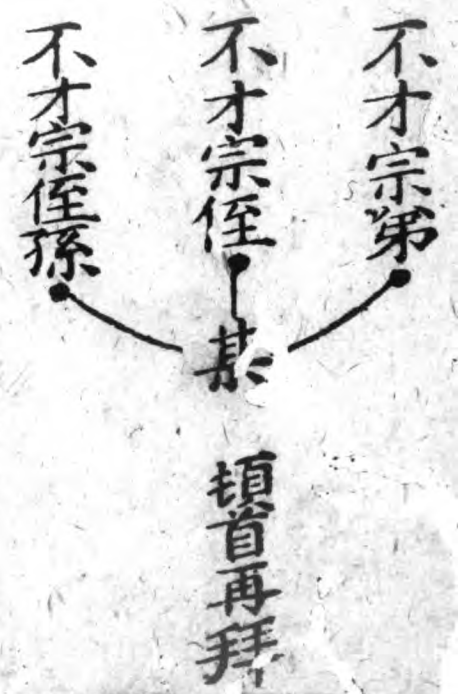 不才宗弟
不才宗侄
不才宗侄孫
某
頓首再拜